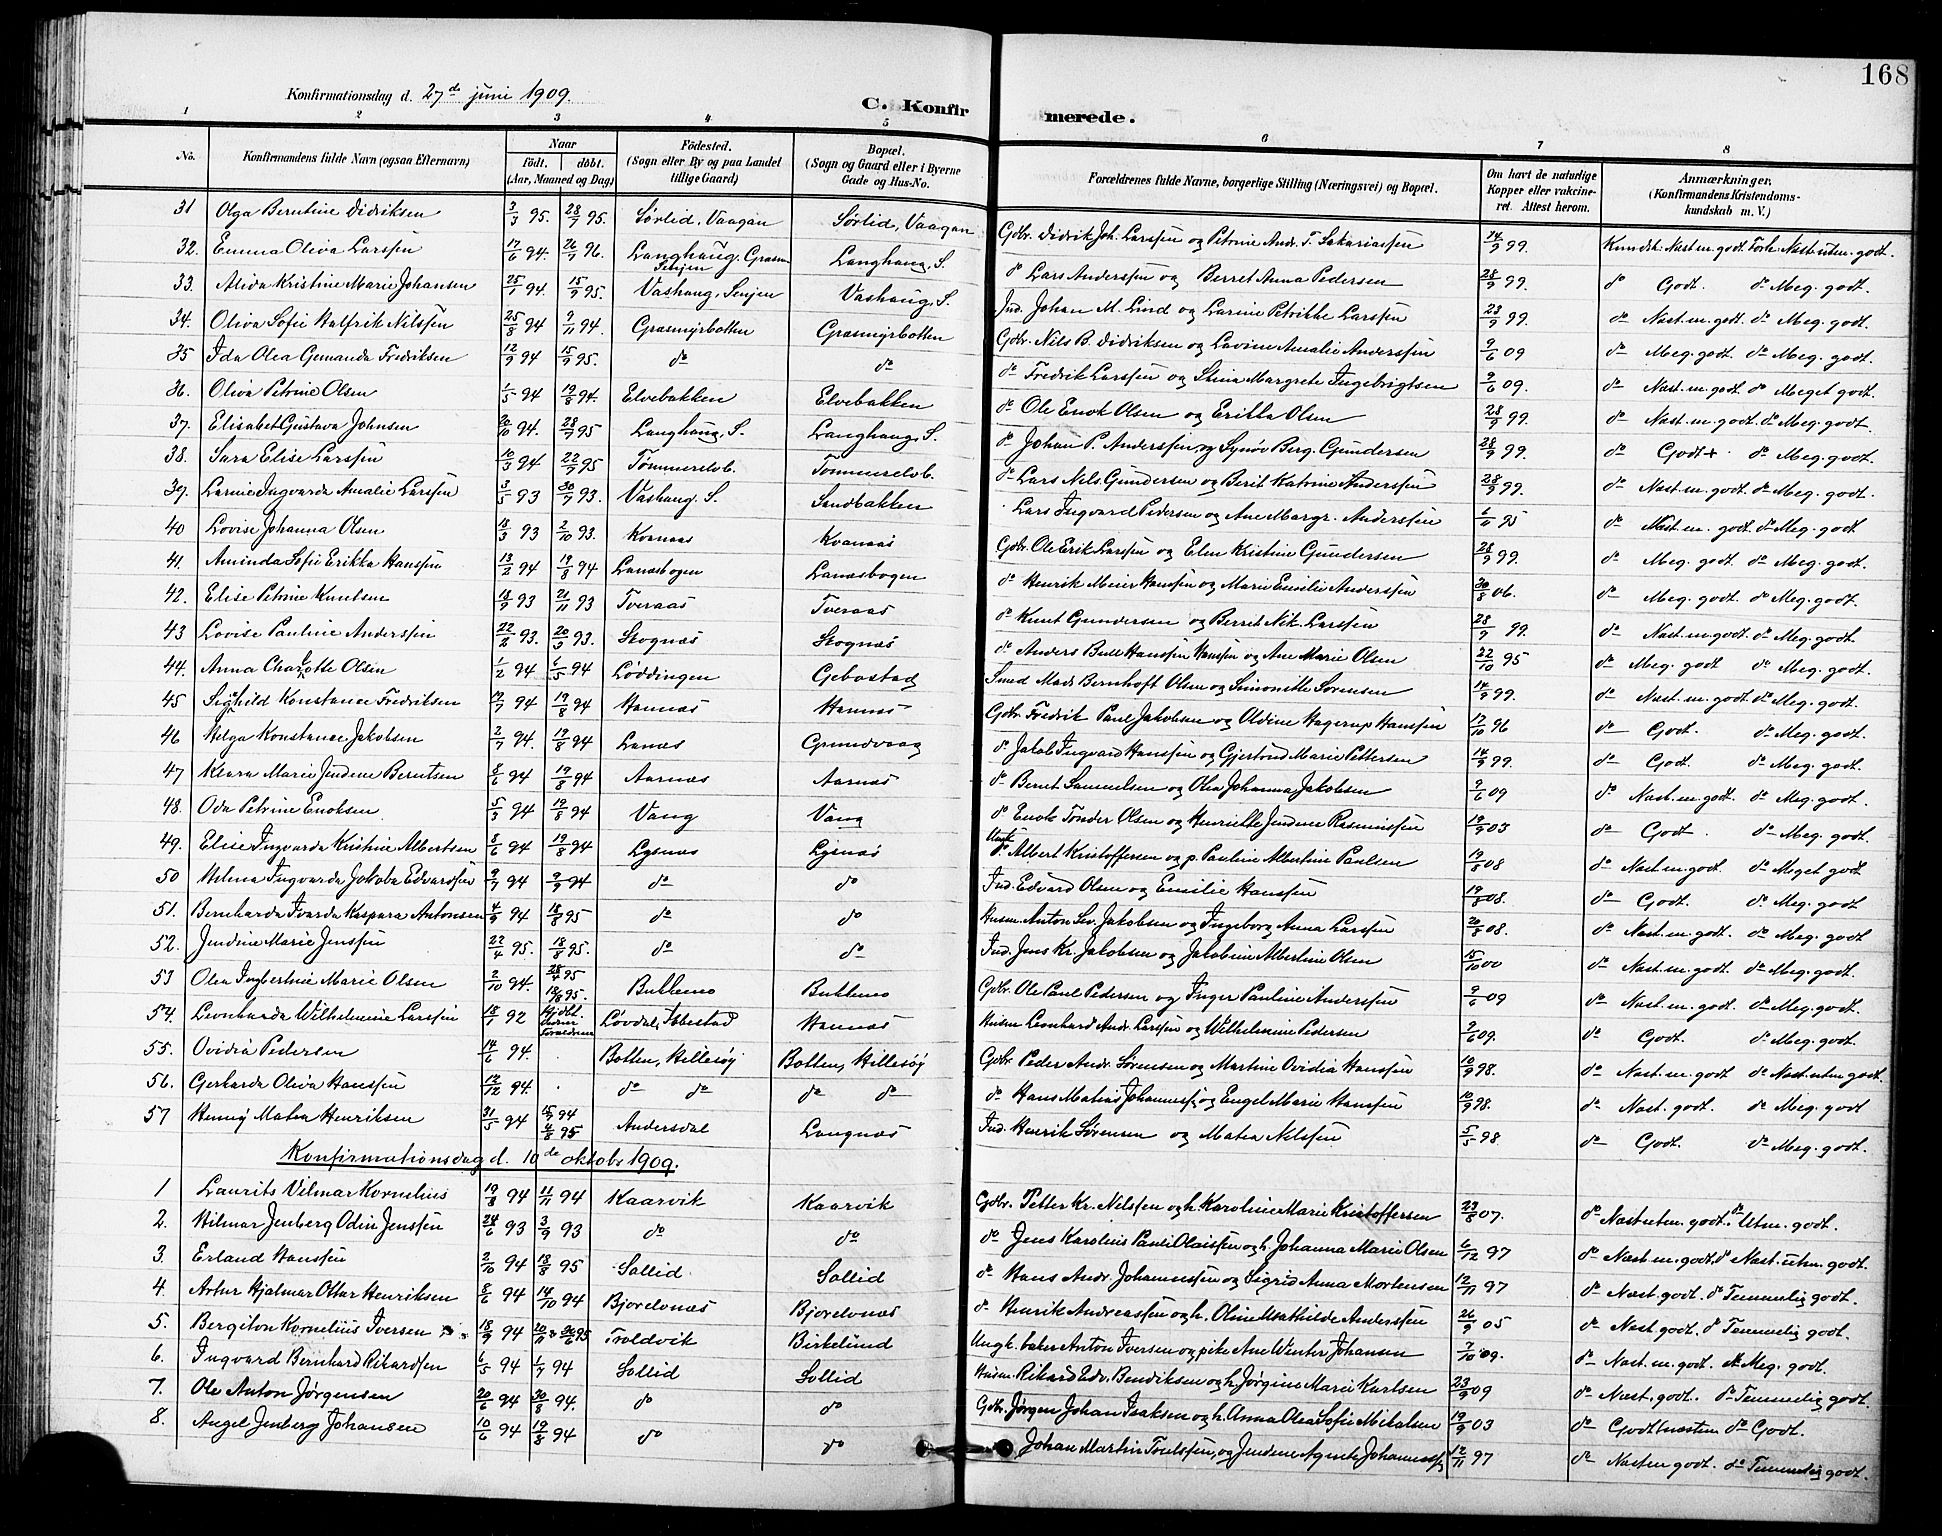 168
Konfirmationsdag d. 27de juni 1909.
C. Konfirmerede.
1 2 3 4 5 6 7 8
No. Konfirmandens fulde Navn (ogsaa Efternavn) Naar født. døbt. (Aar, Maaned og Dag) Fødested. (Sogn eller By og paa Landet tillige Gaard) Bopæl. (Sogn og Gaard eller i Byerne Gade og Hus-No. Forældrenes fulde Navne, borgerlige Stilling (Næringsvei) og Bopæl. Om havt de naturlige Kopper eller vakcineret. Attest herom. Anmærkninger. (Konfirmandens Kristendomskundskab m. V.)
31 Olga Berntine Didriksen 3/3 95. 28/7 95. Sørlid, Vaagan Sørlid, Vaagan Gbr. Didrik Joh. Larssen og Petrine Andr. T. Sakariassen 14/9 99. Kundsk. Næst m. godt Forh. Næst uten. godt.
32. Emma Oliva Larssen 17/6 94. 26/7 96. Langhaug, Senjen Langhaug, S. do Lars Anderssen og Berret Anna Pedersen 28/9 99. do Godt. do Meg. godt.
33. Alida Kristine Marie Johansen 25/1 94. 15/9 95. Vashaug, Senjen Vashaug, S. Ind. Johan M. Lind og Larine Petrikke Larssen 23/9 99. do Næst m. godt. do Meg. godt.
34. Oliva Sofie Halfrik Nilssen 25/8 94 9/11 94. Grasmyrbotten Grasmyrbotten Gbr. Nils B. Didriksen og Lovine Amalie Anderssen 9/6 09 do Meg. godt. do Meg. godt.
35 Ida Olea Gemanda Fredriksen 12/9 94 15/9 95. do do do Fredrik Larssen og Stina Margrete Ingebrigtsen 9/6 09. do Næst. m. godt do Meget godt.
36. Oliva Petrine Olsen 1/5 94 19/8 94. Elvebakken Elvebakken do Ole Enok Olsen og Erikka Olsen 28/9 99. do Næst. m. godt. do Meg. godt.
37. Elisabet Gustava Johnsen 20/10 94. 28/7 95 Langhaug, S. Langhaug, S. do Johan P. Anderssen og Synøv Berg. Gundersen 28/9 99. do Godt+. do Meg. godt.
38. Sara Elise Larssen 10/3 94 22/9 95 Tømmerelvb. Tømmerelvb. do Lars Nels. Gundersen og Berit Katrine Anderssen 28/9 99. do Næst. m. godt. do Meg. godt.
39. Larine Ingvarda Amalie Larssen 3/5 93 30/7 93. Vashaug, S. Sandbakken Lars Ingvard Pedersen og Ane Margr. Anderssen 6/11 95 do Næst m. godt do Meg. godt
40 Lovise Johanna Olsen 18/3 93 2/10 93. Kvanaas Kvanaas Gbr. Ole Erik Larssen og Elen Kristine Gundersen 28/9 99. do Meg. godt. do Meg. godt.
41. Aminda Sofie Erikka Hanssen 13/2 94 19/8 94 Lanæsbogen Lanæsbogen do Henrik Meier Hanssen og Marie Emilie Anderssen 30/8 06. do Meg. godt. do Meg. godt.
42. Elise Petrine Knutsen 18/9 93 21/11 93 Tveraas Tveraas do Knut Gundersen og Berret Nik. Larssen 28/9 99. do Næst. m. godt do Meg. godt.
43 Lovise Pauline Anderssen 22/2 93. 20/3 93. Skognæs Skognæs do Anders Bull Hanssen Hanssen og Ane Marie Olsen 22/10 95 do Meg. godt do Meg. godt.
44. Anna Charlotte Olsen 1/2 94 6/5 94 Løddingen Gebostad Smed Mads Bernhoft Olsen og Simonette Sørensen 14/9 99. do Næst. m. godt do Meg. godt.
45 Signhild Konstance Fredriksen 17/7 94 19/8 94 Hamnæs Hamnæs Gbr. Fredrik Paul Jakobsen og Oldine Hagerup Hanssen 17/10 96 do Godt. do Meg. godt.
46 Helga Konstance Jakobsen 2/7 94. 19/8 94 Lanæs Grundvaag do Jakob Ingvard Hanssen og Gjertrud Marie Pettersen 14/9 99. do Godt do Meg. godt.
47 Klara Marie Jendine Berntsen 8/6 94 19/8 94 Aarnæs Aarnæs do Bernt Samuelsen og Olea Johanna Jakobsen 9/6 09 do Næst. m. godt. do Meg. godt.
48. Oda Petrine Enoksen 5/3 94 19/8 94 Vang Vang do Enok Tønder Olsen og Henriette Jendine Rasmussen 19/9 03 do Godt. do Meg. godt.
49. Elise Ingvarda Kristine Albertsen 8/6 94 19/8 94 Lysnæs Lysnæs Albert Kristoffersen og p. Pauline Albertine Paulsen 19/8 08 do Næst m. godt. do Meget godt
50 Helma Ingvarda Jakoba Edvardsen 9/7 94 9/9 94 do do Ind. Edvard Olsen og Emilie Hanssen 19/8 08. do Godt. do Meg. godt
51. Bernharda Ivarda Kaspara Antonsen 4/9 94 18/8 95 do do Husm. Anton Sev. Jakobsen og Ingeborg Anna Larssen 20/8 08. do Næst. m. godt. do Meg. godt.
52. Jendine Marie Jenssen 22/4 95. 18/8 95. do do Ind. Jens Kr. Jakobsen og Jakobine Albertine Olsen 15/10 00 do Næst m. godt do Meg. godt.
53 Olea Ingbertine Marie Olsen 2/10 94. 28/4 95 18/8 95. Bukkemo Bukkemo Gbr. Ole Paul Pedersen og Inger Pauline Anderssen 9/6 09 do Næst m. godt. do Meg. godt.
54. Leonharda Wilhelmine Larssen 18/1 92 Hjdbt. Løvdal, Ibbestad Hamnæs Husm Leonhard Andr. Larssen og Wilhelmine Pedersen 2/6 09. do Godt. do Meg. godt.
55. Ovidia Pedersen 14/6 94. Botten, Hillesøy Botten, Hillesøy Gbr. Peder Andr. Sørensen og Martine Ovidia Hanssen 10/9 98. do Næst. m. godt do Næst uten godt.
56. Gerharda Oliva Hanssen 12/12 94. do do do do do Hans Matias Johanness. og Engel Marie Hanssen 10/9 98. do Næst. godt. do Meg. godt
57 Henny Matea Henriksen 31/5 94 15/7 94 4/8 95 Andersdal Langnæs Ind. Henrik Sørensen og Matea Nilssen 5/5 98 do Godt. do Meg. godt.
Konfirmationsdag d. 10de oktobr 1909.
1 Laurits Vilmar Kornelius 19/8 94 11/11 94 Kaarvik Kaarvik Gbr. Petter Kr. Nilssen og h. Karoline Marie Kristoffersen 23/8 07. do Næst uten. godt. do Utm. godt.
2. Hilmar Jenberg Odin Jenssen 24/6 93 3/9 93 do do do Jens Karolius Pauli Olaissen og h. Johanna Marie Olsen 6/12 97 do Næst. m. godt. do Næst. utm. godt.
3. Erland Hanssen 2/10 94 18/8 95 Sollid Sollid do Hans Andr. Johannessen og Sigrid Anna Mortensen 12/11 97 do Næst. godt. do Temmelig godt.
4. Artur Hjalmar Ottar Henriksen 8/6 94 14/10 94 Bjorelvnæs Bjorelvnæs do Henrik Andreassen og h. Oline Mathilde Anderssen 26/9 05 do Næst godt. do Temmelig godt.
5. Bergiton Kornelius Iversen 18/9 94 20/11 & 30/6 95 Troldvik Birkelund Ungk. baker Anton Iversen og pike Ane Winter Johansen 7/10 09. do Næst. m. godt. do Meg. godt.
6. Ingvard Bernhard Rikardsen 6/5 94 1/7 94 Sollid Sollid Husm. Rikard Edv. Bendiksen og h. Jørgine Marie Karlsen 23/9 09 do Næst. godt. do Temmelig godt.
7. Ole Anton Jørgensen 20/6 94 30/8 94. do do Gbr. Jørgen Johan Isaksen og h. Anna Olea Sofie Mikalsen 19/9 03 do Godt næsten do Godt.
8. Angel Jenberg Johansen 10/6 94 19/8 94 do do Johan Martin Toulssen, og Jendine Agnete Johanness. 12/11 97 do Næsten godt. do Temmelig godt.